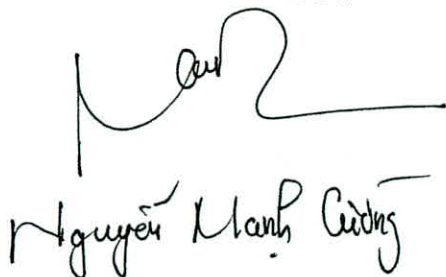 Nguyễn Mạnh Cường